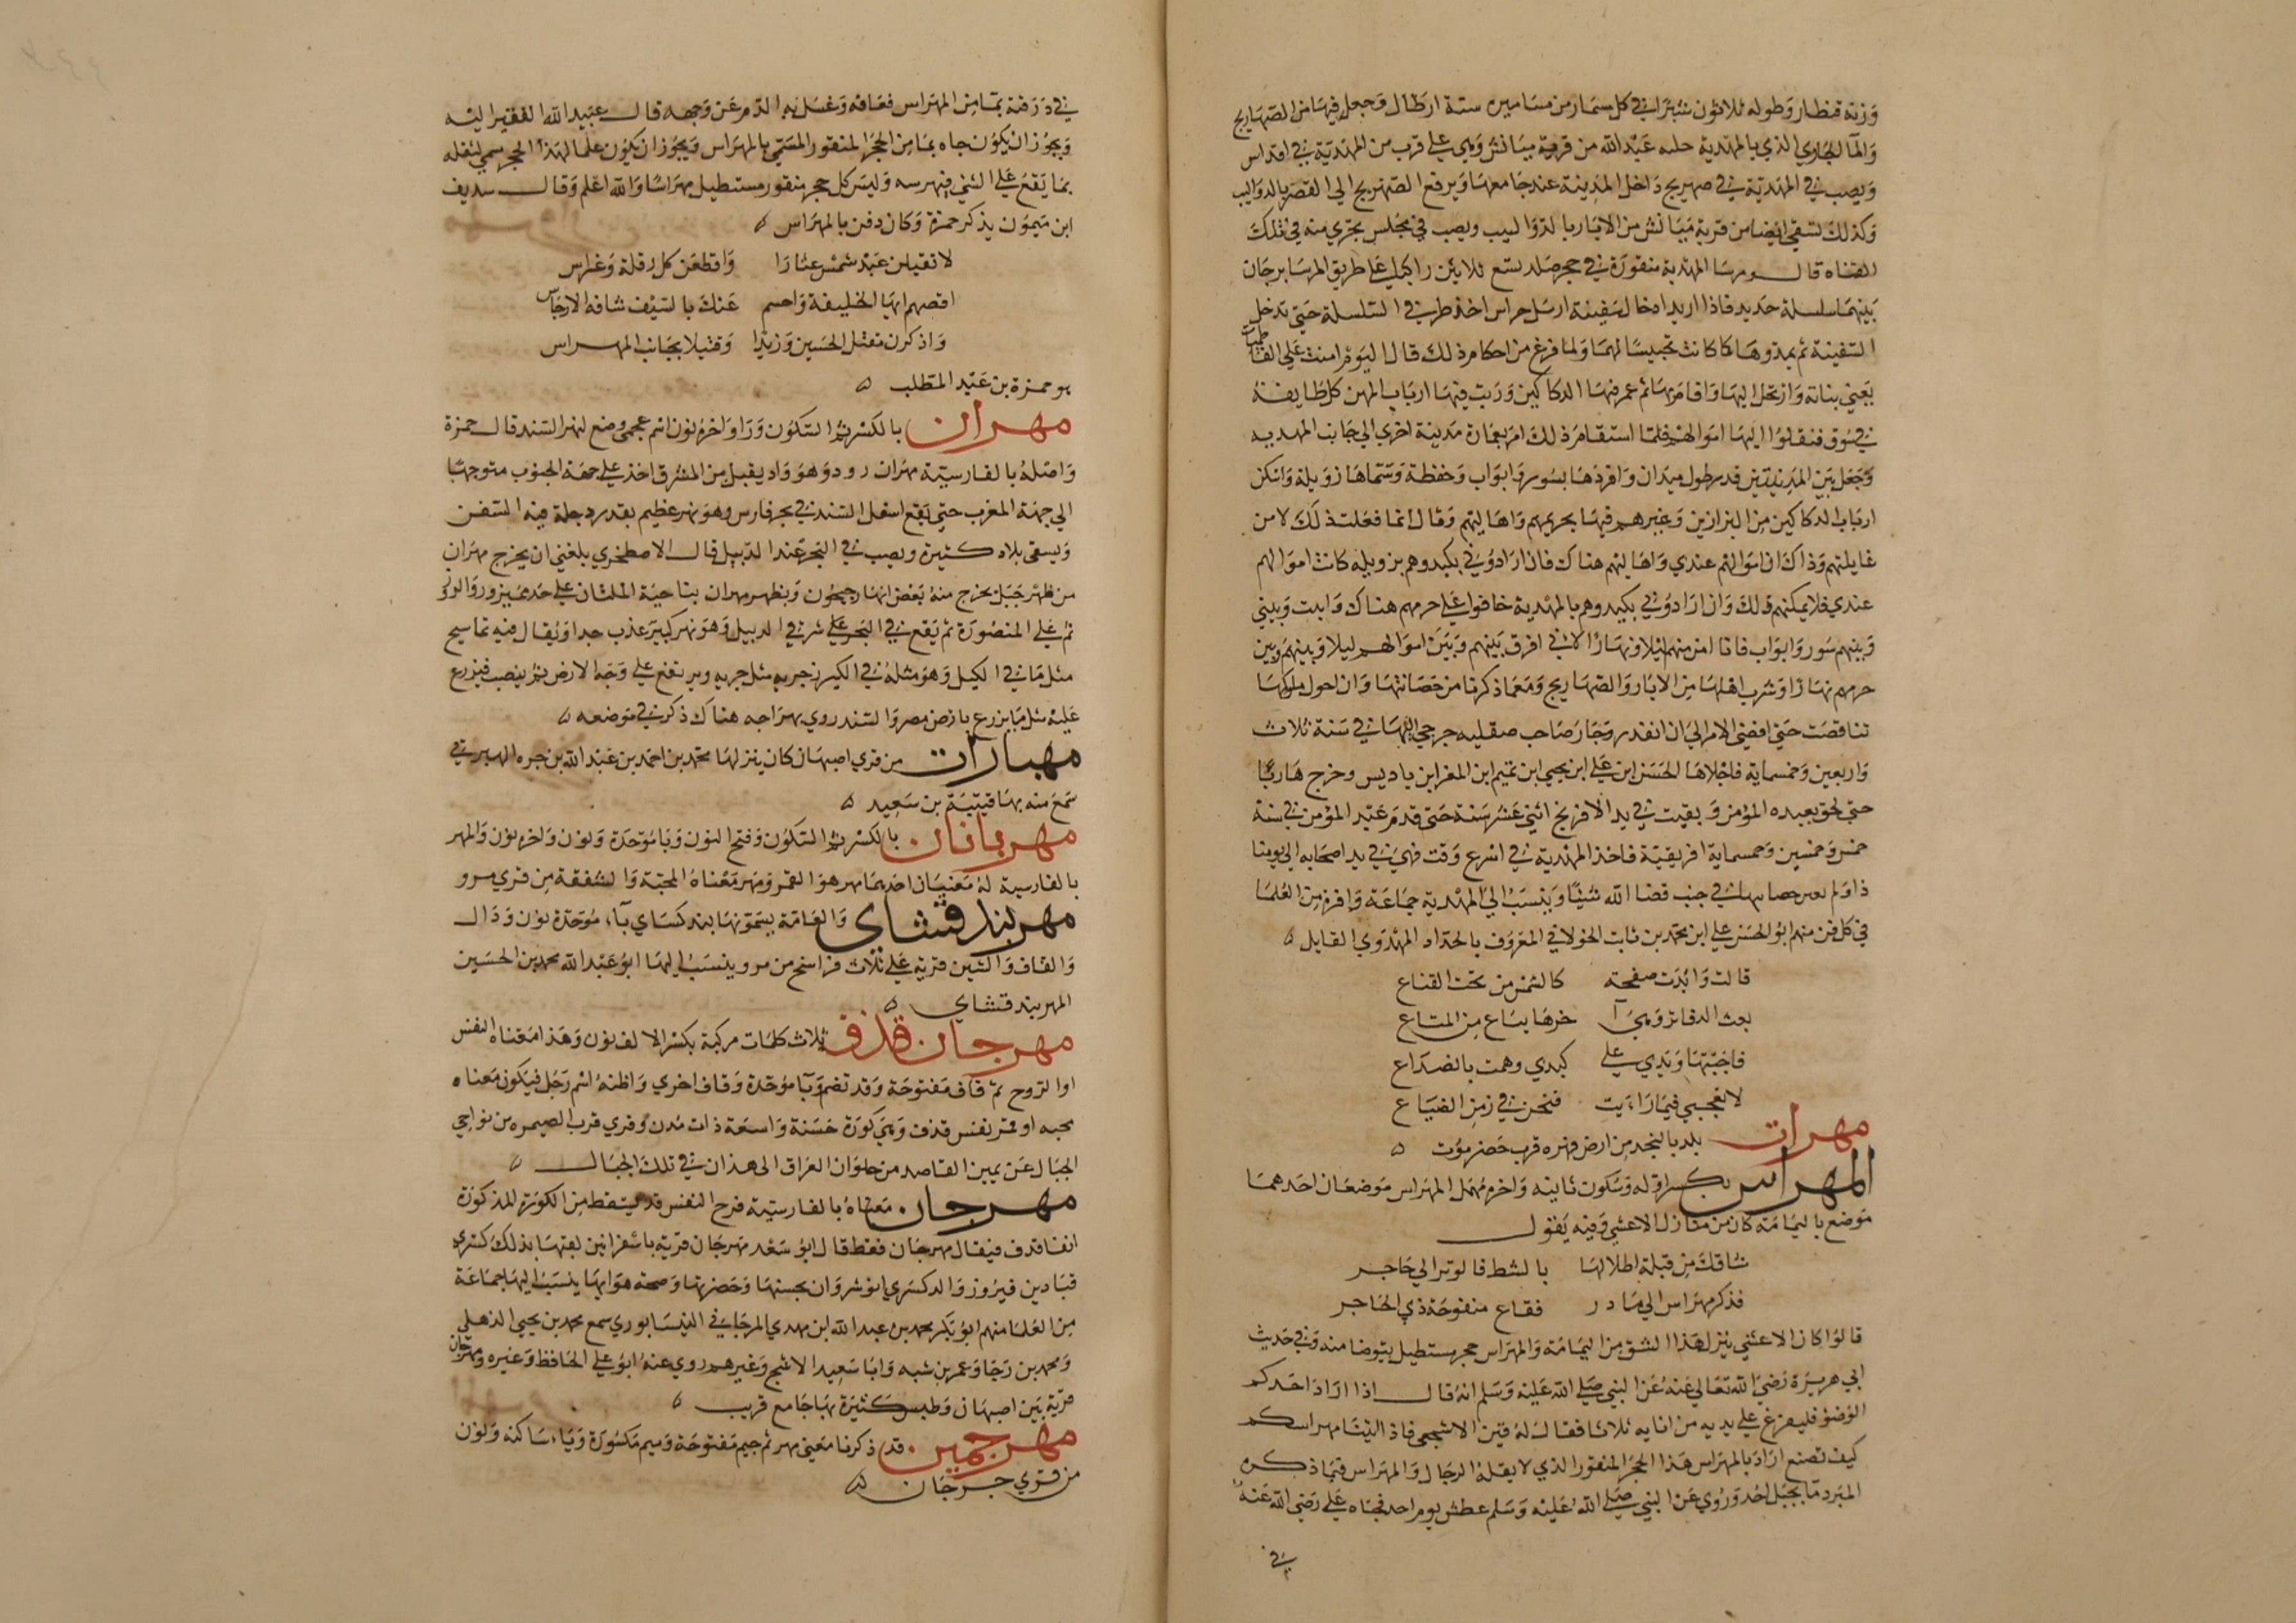 وزنه قنطار وطوله ثلاثون شبرا في كل سمار من مسامير ستة ارطال وجعل فيها من الصهاريج
والما الجاري الذي بالمهدية جلبه عبد الله من قرية ميانش وهي على قرب من المهدية في اقداس
ويصب في المهدية في صهريج داخل المدينة عند جامعها ويرفع من الصهريج الى القصر بالدواليب
وكذلك تسقي ايضا من قرية ميانش من الابار بالدواليب ويصب في مجلس يجري منه في تلك
القناه قال ومرسا المهدية منقورة في حجر صلد تسع ثلاثين راكبا على طريق المرسا برجان
بينهما سلسلة حديد فاذا اريد ادخال سفينة ارسل حراس احد طرفي السلسلة حتى تدخل
السفينة ثم يمدوها كما كانت تحبيسا لهما ولما فرغ من احكام ذلك قال اليوم امنت على الفاطميات
يعني بناته وارتحل اليها واقام بها ثم عمر فيها الدكاكين ورتب فيها ارباب المهن كل طايفة
في سوق فنقلوا اليها اموالهم فلما استقام ذلك امر بعمارة مدينة اخرى الى جانب المهدية
وجعل بين المدينتين قدر طول ميدان وافردها بسور وابواب وحفظة وسماها زويلة واسكن
ارباب الدكاكين من البزازين وغيرهم فيها بحريمهم واهاليهم وقال انما فعلت ذلك لامن
غايلتهم وذاك ان اموالهم عندي واهاليهم هناك فان ارادوني بكيد وهم بزويلة كانت اموالهم
عندي فلا يمكنهم ذلك وان ارادوني بكيد وهم بالمهدية خافوا على حرمهم هناك وابنيت وبيني
وبينهم سور وابواب فانا امن منهم ليلا ونهارا لاني افرق بينهم وبين اموالهم ليلا وبينهم وبين
حرمهم نهارا وشرب اهلها من الابار والصهاريج ومع ما ذكرنا من حصانتها وان احول ملوكها
تناقصت حتى افضي الامر الى ان انفذ رجار صاحب صقليه جرجي اليها في سنة ثلاث
واربعين وخمسماية فاخلاها الحسن ابن علي ابن يحيى ابن تميم ابن المعز ابن باديس وخرج هاربا
حتى لحق بعبد المؤمن وبقيت في يد الافرنج اثنى عشر سنة حتى قدم عبد المؤمن في سنة
خمس وخمسين وخمسماية افريقية فاخذ المهدية في اسرع وقت فهي في يد اصحابه الى يومنا
ذا ولم يغن حصانتها في جنب قضا الله شيئا وينسب الى المهدية جماعة وافرة من العلما
في كل فن منهم ابو الحسن علي ابن محمد بن ثابت الخولاني المعروف بالحداد المهدوي القايل ه
قالت وابدت صفحة كالشمس من تحت القناع
بعت الدفاتر وهي آ خرها يباع من المتاع
فاجبتها ويدي على كبدي وهمت بالصداع
لا تعجبي فيما رايت فنحن في زمن الضياع
مهرات بلد بالنجد من ارض مهره قرب حضرموت ه
المهراس بكسر اوله وسكون ثانيه واخره مهمل المهراس موضعان احدهما
موضع باليمامة كان من منازل الاعشى وفيه يقول
شاقك من قيلة اطلالها بالشط فالوتر الى حاجر
فذكر مهراس الى مادر فقاع منفوحة ذي الحاجر
قالوا كان الاعشى ينزل هذا الشق من اليمامة والمهراس حجر مستطيل يتوضا منه وفي حديث
ابي هريرة رضي الله تعالى عنه عن النبي صلى الله عليه وسلم انه قال اذا اراد احدكم
الوضو فليفرغ على يديه من انايه ثلاثا فقال له قين الاشجعي فاذا اتينا مهراسكم
كيف تصنع اراد بالمهراس هذا الحجر المنقور الذي لا يقله الرجال والمهراس فيما ذكره
المبرد ما بجبل احد وروي عن النبي صلى الله عليه وسلم عطش يوم احد فجاه علي رضي الله عنه
في
في درقة بما من المهراس فعافه وغسل به الدم عن وجهه قال عبيد الله الفقير اليه
ويجوز ان يكون جاه بما من الحجر المنقور المسمى بالمهراس ويجوز ان يكون علما لهذا الحجر سمي لثقله
بما يقع على الشي فيهرسه وليس كل حجر منقور مستطيل مهراسا والله اعلم وقال سديف
ابن ميمون يذكر حمزة وكان دفن بالمهراس ه
لا تقيلن عبد شمس عثارا واقطعن كل رقلة وغراس
اقصهم ايها الخليفة واحسم عنك بالسيف شافه الارجاس
واذكرن مقتل الحسين وزيدا وقتيلا بجانب المهراس
هو حمزة بن عبد المطلب ه
مهران بالكسر ثم السكون ورا واخره نون اسم عجمي وضع لنهر السند قال حمزة
واصله بالفارسية مهران رود وهو واد يقبل من المشرق اخذ على جهة الجنوب متوجها
الى جهة المغرب حتى يقع اسفل السند في بحر فارس وهو نهر عظيم بقدر دجلة فيه السفن
ويسقي بلاد كثيرة ويصب في البحر عند الديبل قال الاصطخري بلغني ان يخرج مهران
من ظهر جبل يخرج منه بعض انهار جيحون ويظهر مهران بناحية الملثان على حد سمندور والرور
ثم على المنصورة ثم يقع في البحر على شرقي الديبل وهو نهر كبير عذب جدا ويقال فيه تماسيح
مثل ما في النيل وهو مثله في الكبر جريه مثل جريه ويرتفع على وجه الارض ثم ينصب فيزرع
عليه مثل ما يزرع بارض مصر والسند روي بهراجه هناك ذكر في موضعه ه
مهبارات من قرى اصبهان كان ينزلها محمد بن احمد بن عبد الله بن جره المهبرتي
سمع منه بها قتيبة بن سعيد ه
مهربانان بالكسر ثم السكون وفتح النون وبا موحدة ونون واخره نون والمهر
بالفارسية له معنيان احدهما مهر هو القمر ومهر معناه المحبة والشفقة من قرى مرو
مهربندقشاي والعامة يسمونها بندكساي بآ، موحدة نون ودال
والقاف والشين قرية على ثلاث فراسخ من مرو ينسب اليها ابو عبد الله محمد بن الحسين
المهربندقشاي ه
مهرجان قذف ثلاث كلمات مركبة بكسر الالف نون وهذا معناه النفس
او الروح ثم قاف مفتوحة وقد تضم وبا موحدة وقاف اخرى واظنه اسم رجل فيكون معناه
محبه او قمر نفس قذف وهي كورة حسنة واسعة ذات مدن وقرى قرب الصيمره من نواحي
الجبال عن يمين القاصد من حلوان العراق الى همذان في تلك الجبال ه
مهرجان معناه بالفارسية فرح النفس قد يسقط من الكورة المذكورة
انفا قذف فيقال مهرجان فقط قال ابو سعد مهرجان قرية باسفراين لقبها بذلك كسرى
قباد بن فيروز والد كسرى انوشروان بحسنها وخضرتها وصحة هوايها ينسب اليها جماعة
من العلما منهم ابو بكر محمد بن عبد الله ابن مهدي المرجاني النيسابوري سمع محمد بن يحيى الذهلي
ومحمد بن رجا وعمر بن شبه وابا سعيد الاشج وغيرهم روى عنه ابو علي الحافظ وغيره ومهرجان
قرية بين اصبهان وطبس كثيرة بها جامع قريب ه
مهرجمين قد ذكرنا معنى مهر ثم جيم مفتوحة وميم مكسورة ويا، ساكنه ونون
من قرى جرجان ه